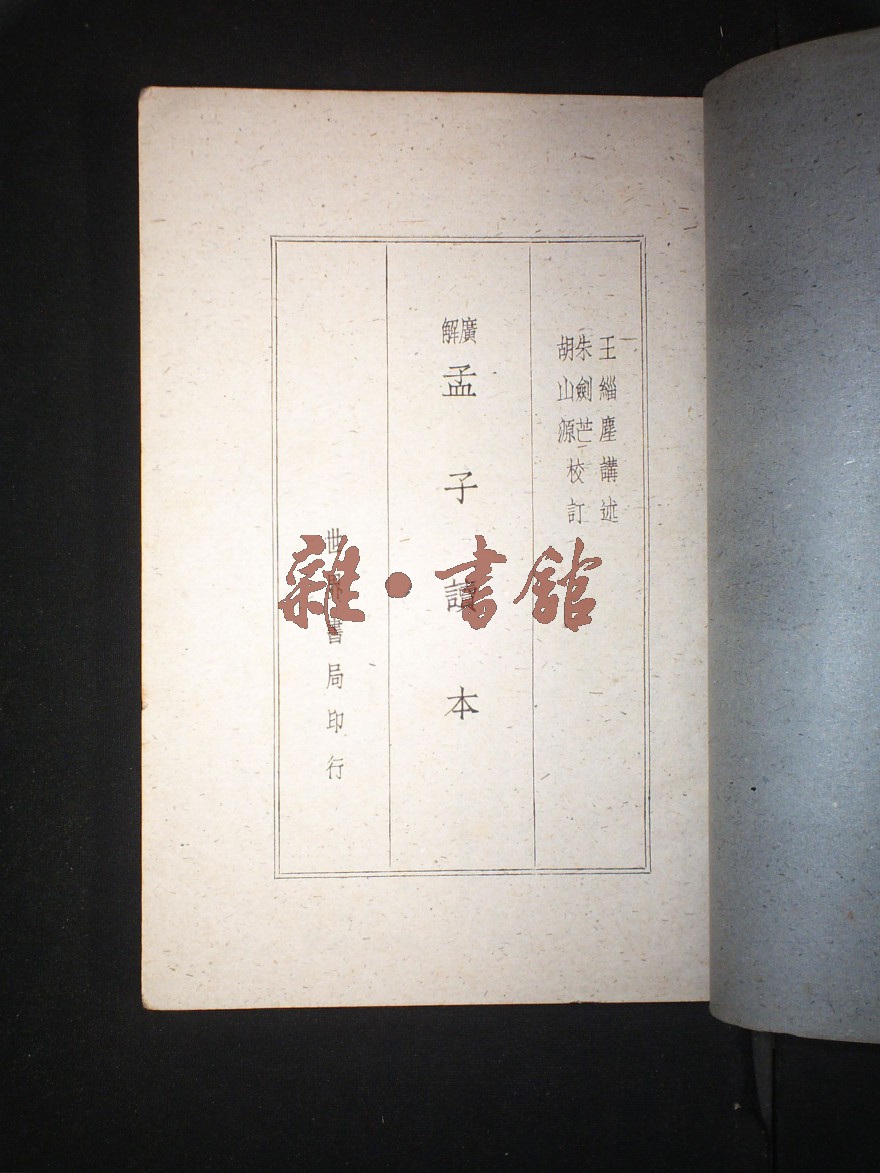 王緇塵講述
朱劍芒
胡山源
校訂
廣解
孟子讀本
世界書局印行
雜·書館